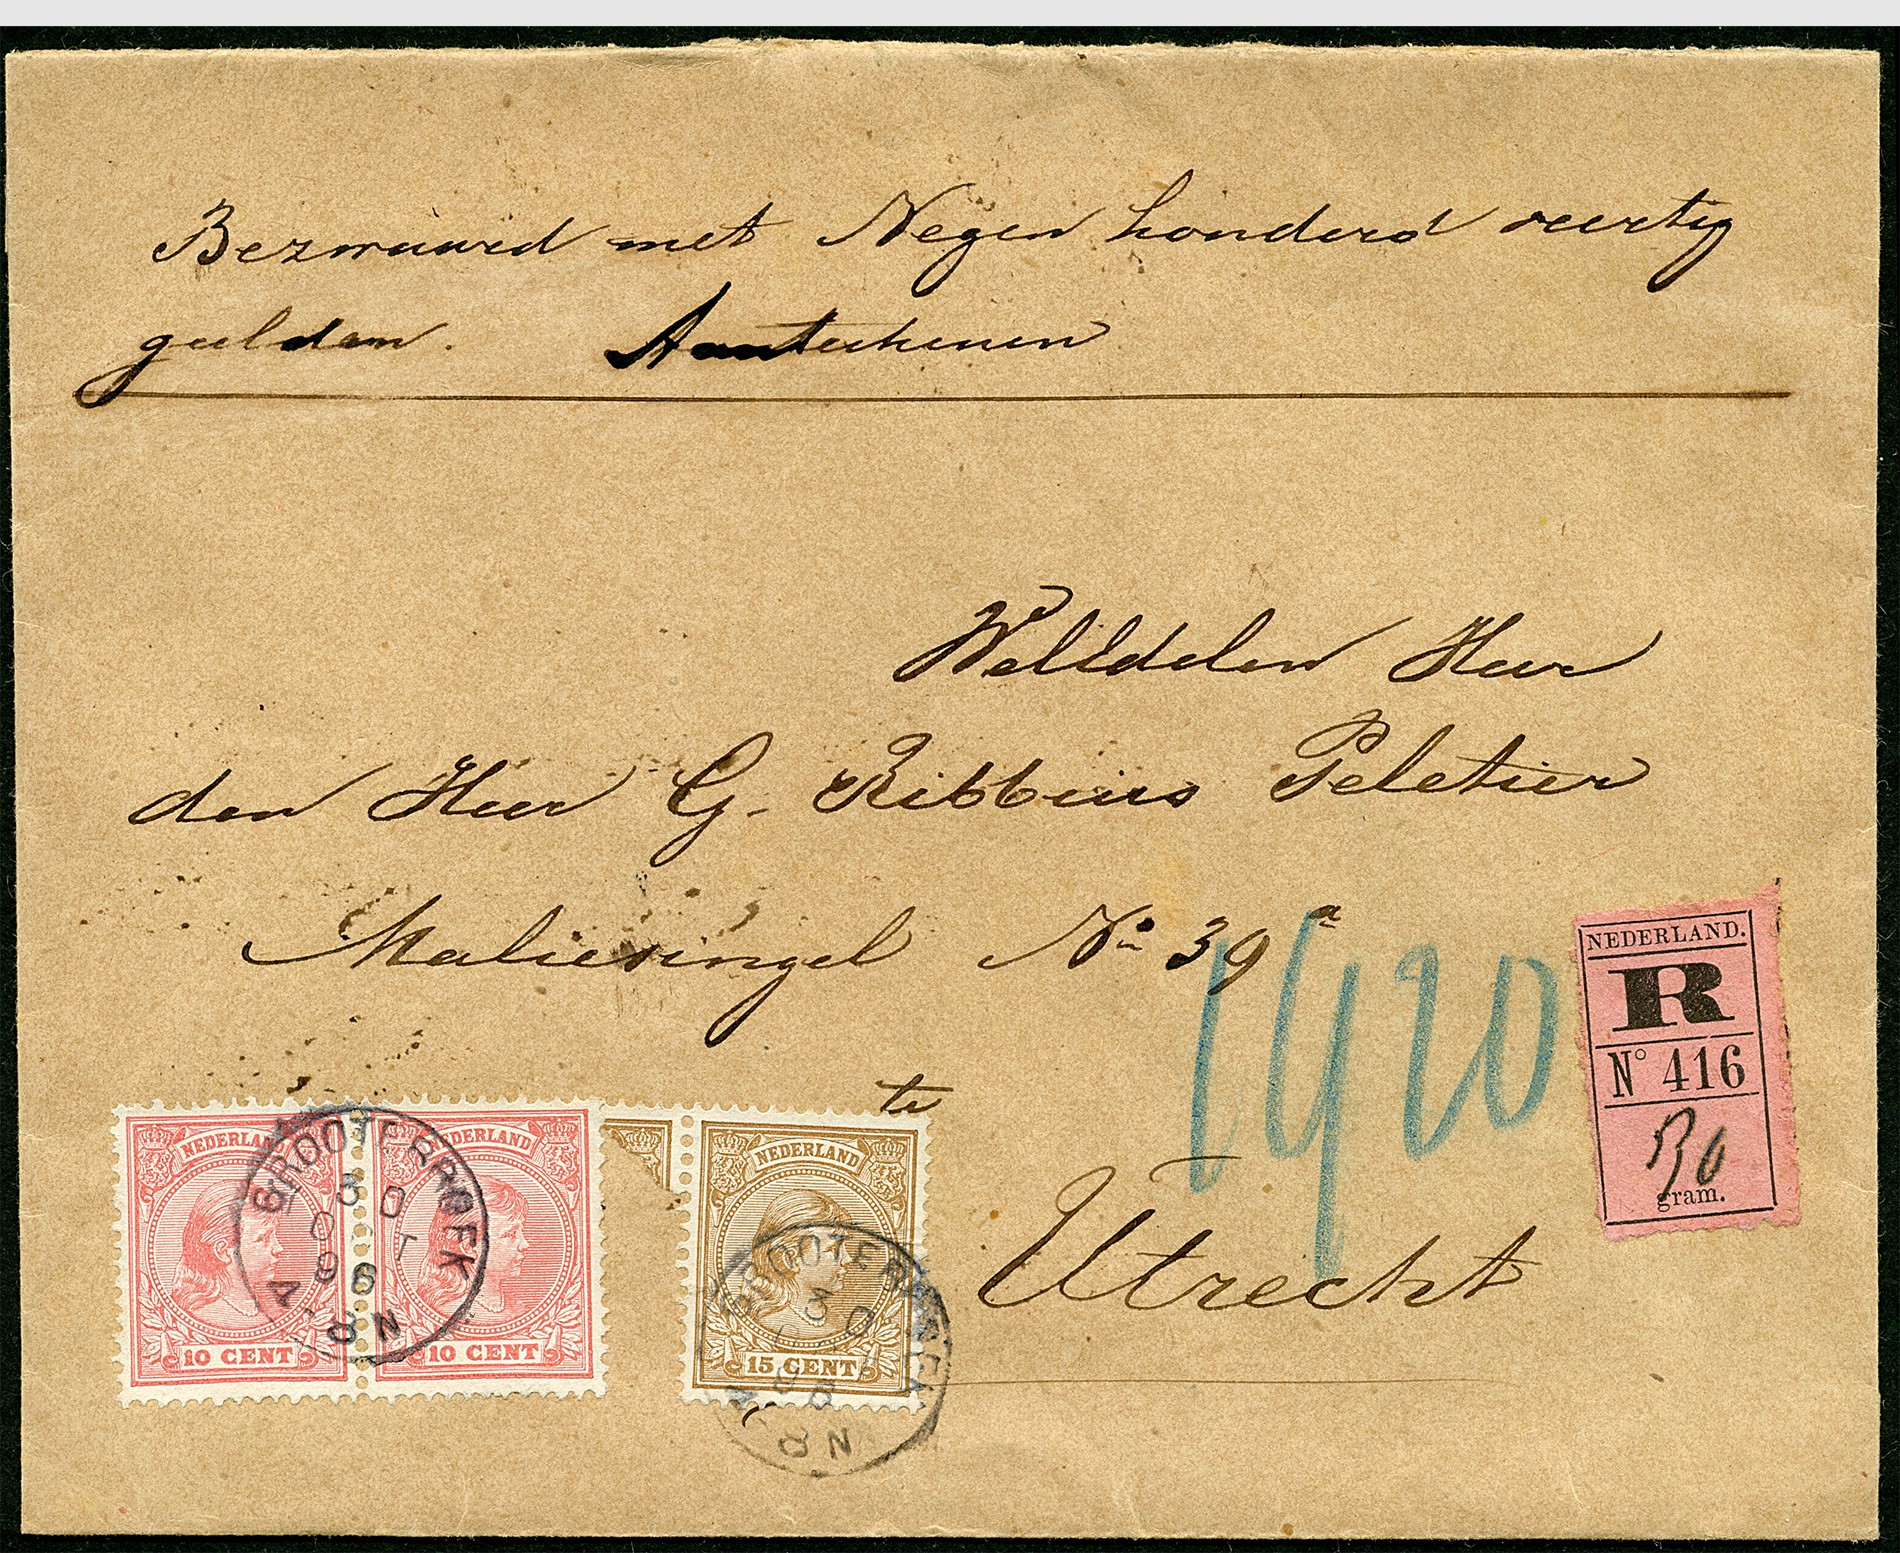 Bezwaard met Negen honderd veertig
gulden. Aanteekenen
WelEdelen Heer
den Heer G. Ribbius Peletier
Maliesingel No 39a
te
Utrecht
1920
NEDERLAND.
R
No 416
gram.
NEDERLAND
10 CENT
NEDERLAND
10 CENT
NEDERLAND
15 CENT
GROOTEBROEK
30
OCT
96
8 N
GROOTEBROEK
30
96
8 N